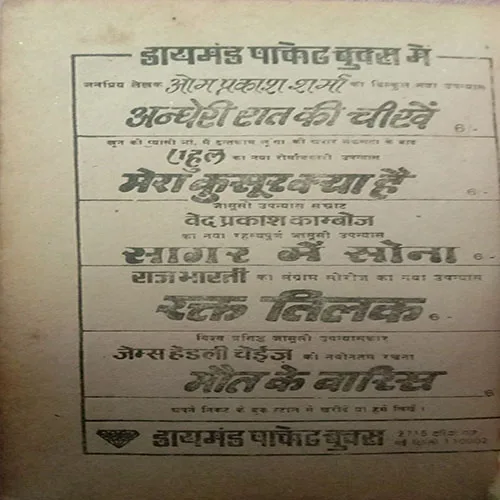 डायमंड पाकेट बुक्स में
जनप्रिय लेखक ओम प्रकाश शर्मा का बिल्कुल नया उपन्यास
अन्धेरी रात की चीखें 6/-
राहुल का नया रोमांचकारी उपन्यास
मेरा कुसूर क्या है
जासूसी उपन्यास सम्राट
वेद प्रकाश काम्बोज
का नया रहस्यपूर्ण जासूसी उपन्यास
सागर में सोना 6/-
राज भारती का संग्राम सीरीज का नया उपन्यास
रक्त तिलक 6/-
विश्व प्रसिद्ध जासूसी उपन्यासकार
जेम्स हेडली चेईज की नवीनतम रचना
मौत के वारिस 6/-
अपने निकट के बुक स्टाल से खरीदें या हमें लिखें।
डायमंड पाकेट बुक्स 2715
110002